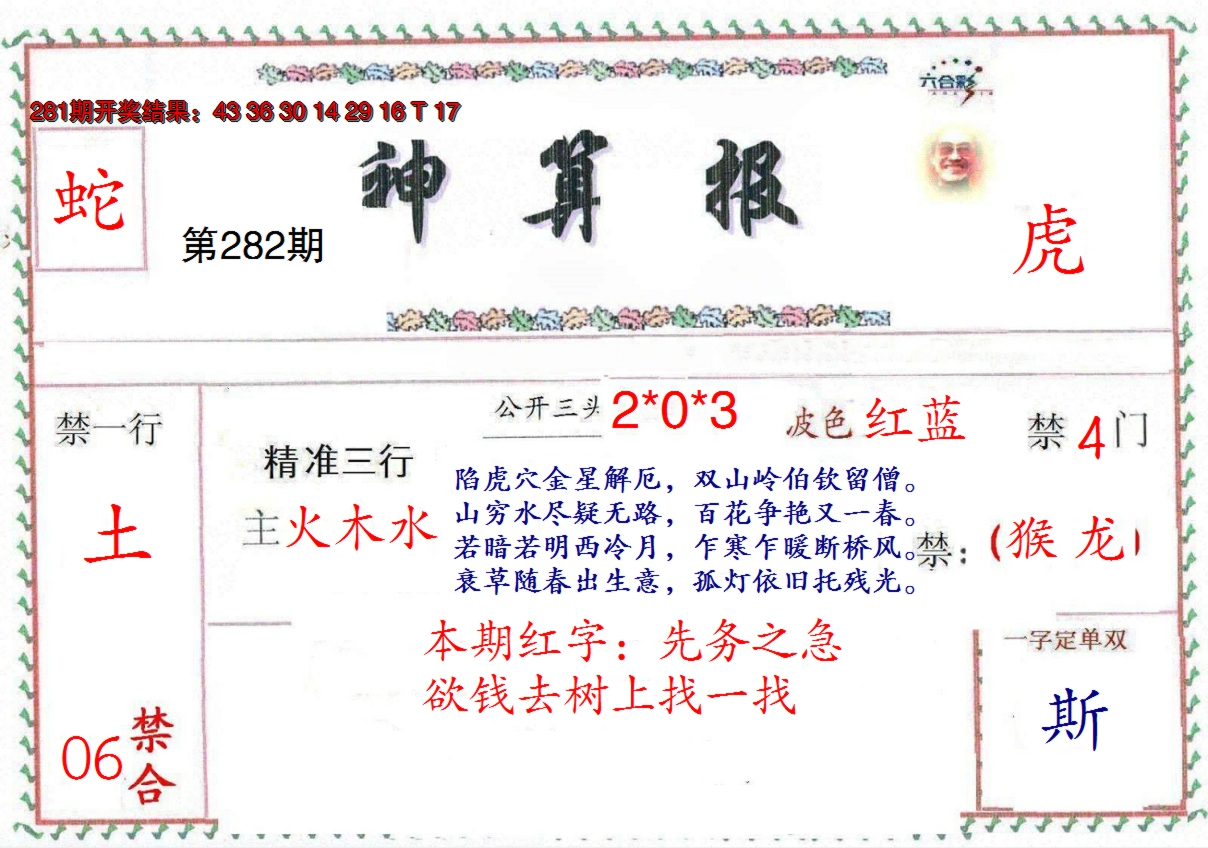 六合彩
281期开奖结果：43 36 30 14 29 16 T 17
神算报
蛇
第282期
虎
公开三头 2*0*3
波色 红蓝
禁4门
禁一行
土
精准三行
主火木水
陷虎穴金星解厄，双山岭伯钦留僧。
山穷水尽疑无路，百花争艳又一春。
若暗若明西冷月，乍寒乍暖断桥风。
衰草随春出生意，孤灯依旧托残光。
禁：(猴 龙)
本期红字：先务之急
欲钱去树上找一找
一字定单双
斯
06禁合